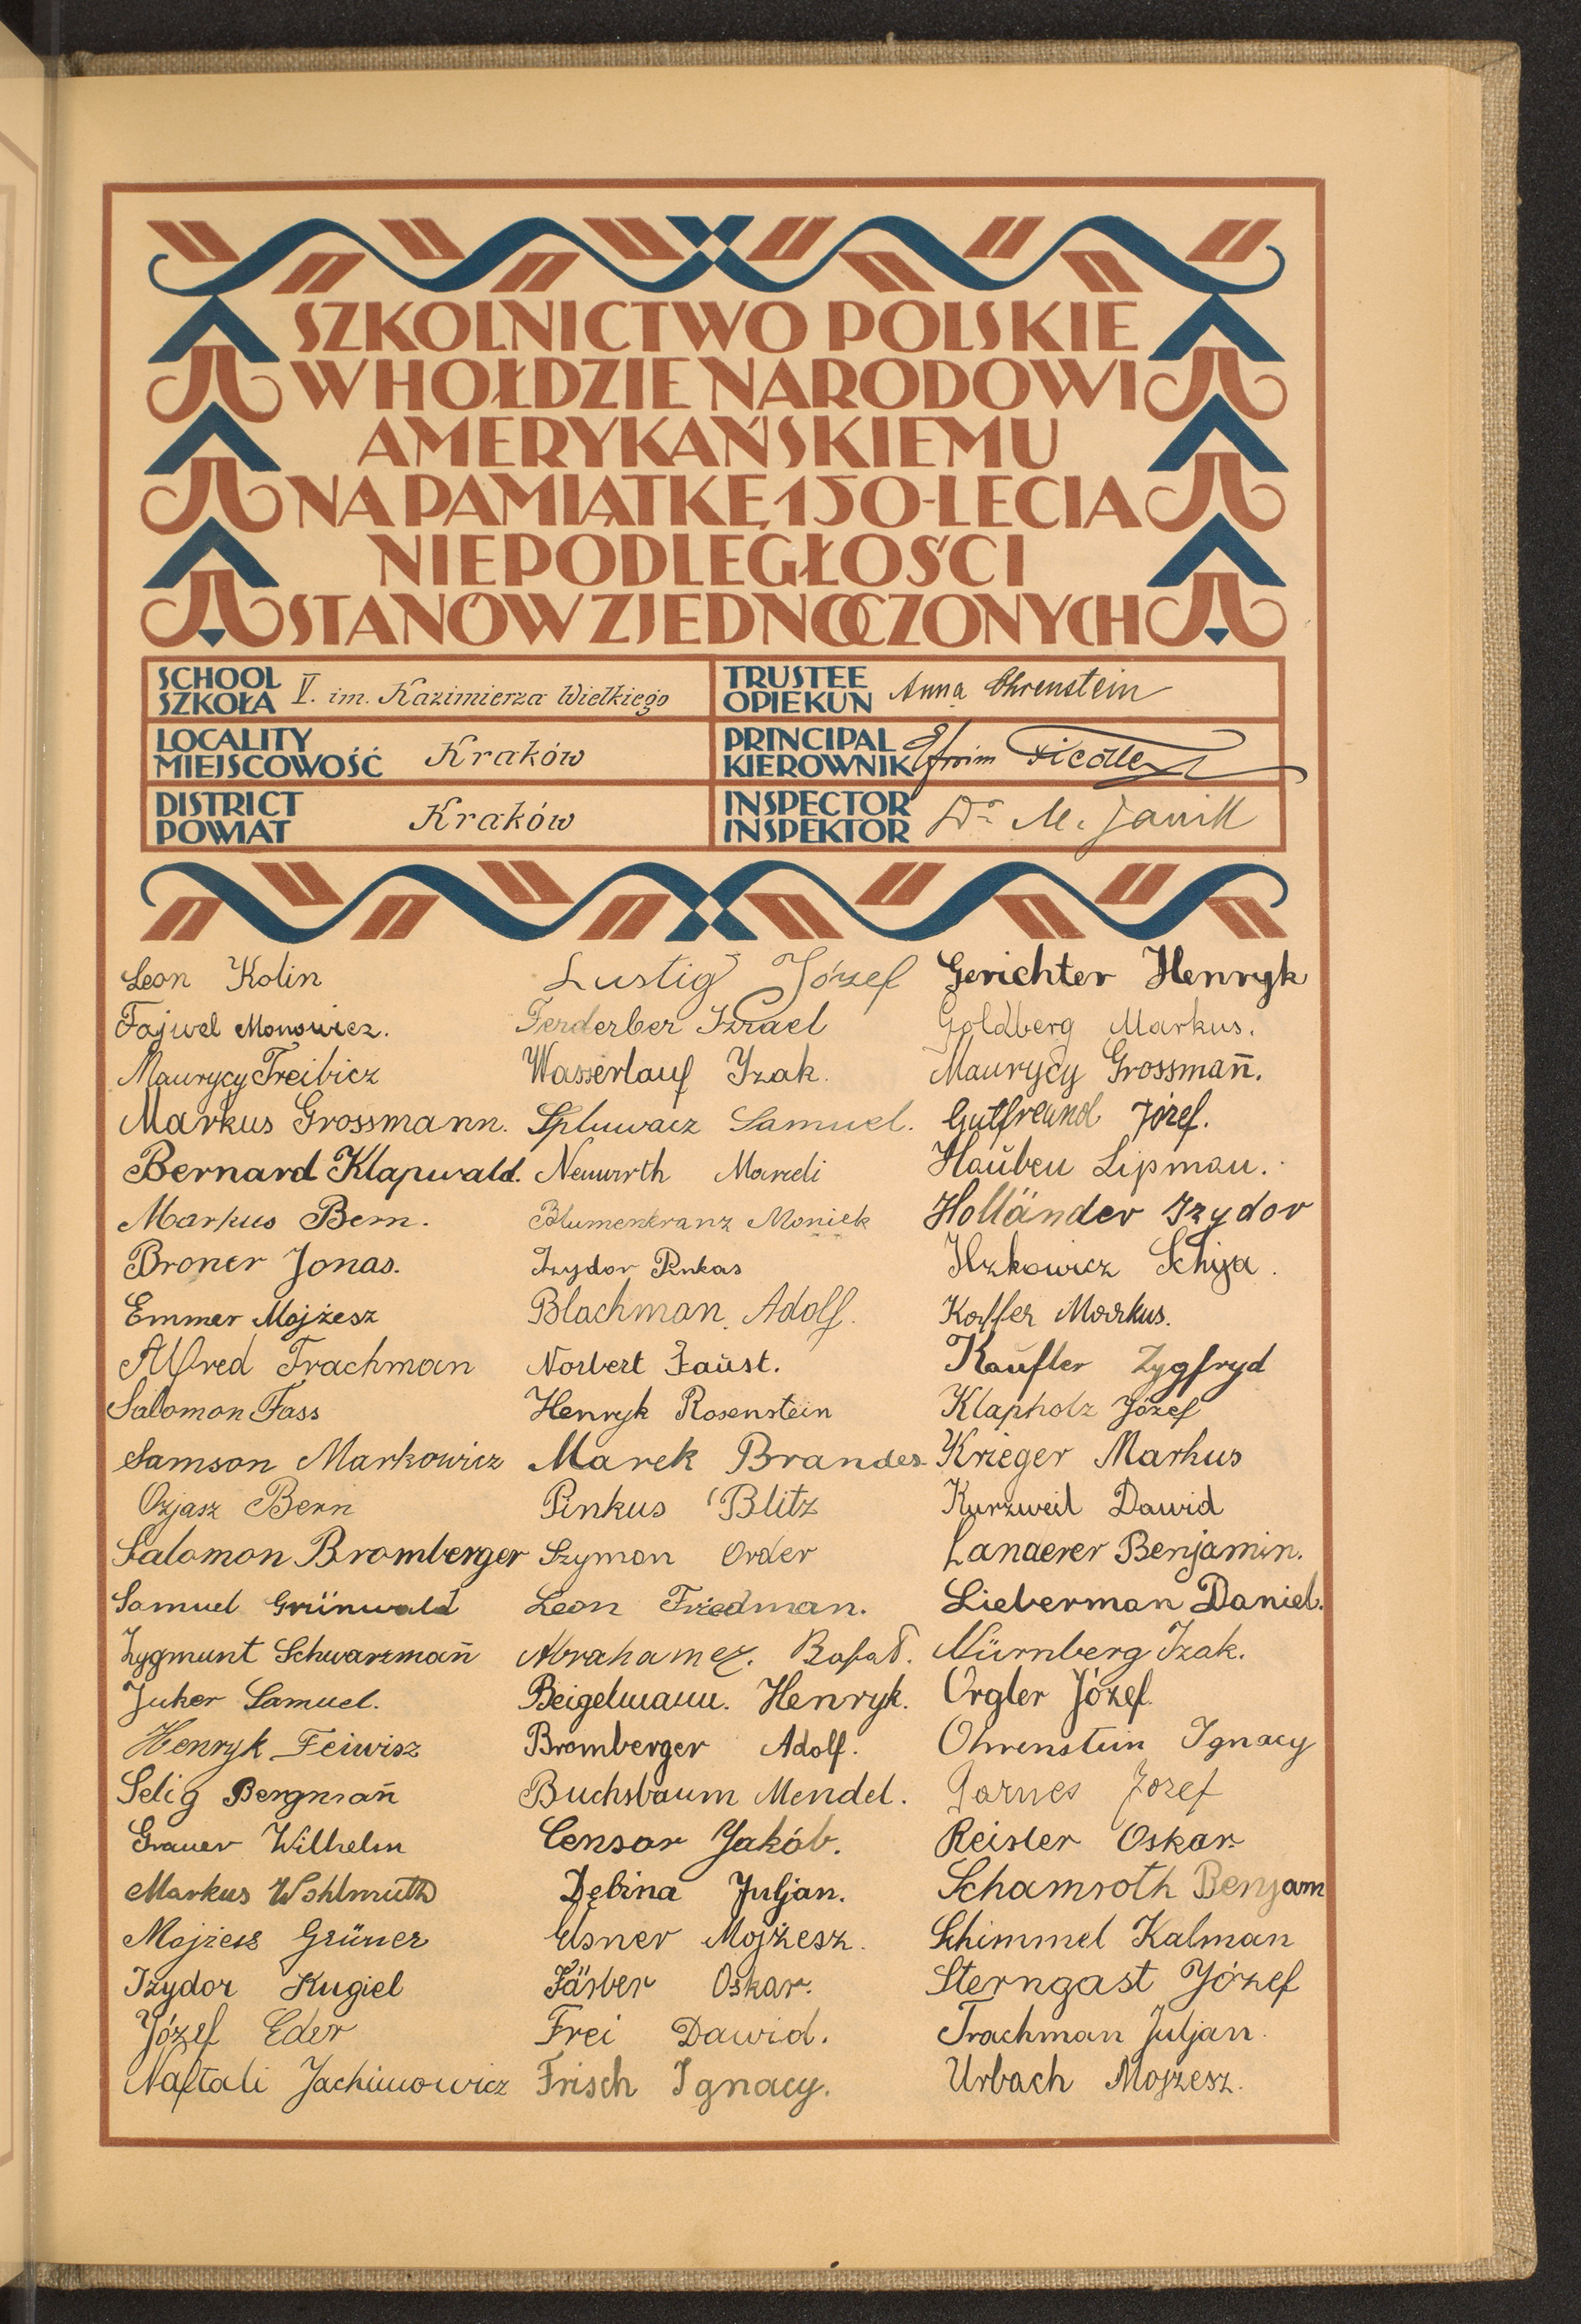 SZKOLNICTWO POLSKIE
W HOŁDZIE NARODOWI
AMERYKAŃSKIEMU
NA PAMIĄTKĘ 150-LECIA
NIEPODLEGŁOŚCI
STANÓW ZJEDNOCZONYCH
SCHOOL
SZKOŁA V. im. Kazimierza Wielkiego
TRUSTEE
OPIEKUN Anna Ohrenstein
LOCALITY
MIEJSCOWOŚĆ Kraków
PRINCIPAL
KIEROWNIK Efroim Fiedler
DISTRICT
POWIAT Kraków
INSPECTOR
INSPEKTOR Dr M. Janik
Leon Kolin
Fajwel Monowicz.
Maurycy Treibicz
Markus Grossmann.
Bernard Klapwald.
Markus Bern.
Broner Jonas.
Emmer Mojżesz
Alfred Trachman
Salomon Fass
Samson Markowicz
Ozjasz Bern
Salomon Bromberger
Samuel Grünwald
Zygmunt Schwarzman̄
Juker Samuel.
Henryk Feiwisz
Selig Bergman̄
Grauer Wilhelm
Markus Wohlmuth
Mojżesz Grüner
Izydor Kugiel
Józef Eder
Naftali Jachimowicz
Lustig Józef
Ferderber Izrael
Wasserlauf Izak.
Spluwacz Samuel.
Neuwirth Marceli
Blumenkranz Moniek
Izydor Pinkas
Blachman Adolf.
Norbert Faust.
Henryk Rosenstein
Marek Brandes
Pinkus Blitz
Szymon Order
Leon Friedman.
Abrahamer. Rafał.
Beigelmann. Henryk.
Bromberger Adolf.
Buchsbaum Mendel.
Censor Jakób.
Dębina Juljan.
Elsner Mojżesz.
Färber Oskar.
Frei Dawid.
Frisch Ignacy.
Gerichter Henryk
Goldberg Markus.
Maurycy Grossman̄.
Gutfreund Józef.
Hauben Lipman.
Holländer Izydor
Ickowicz Schija.
Kaffer Markus.
Kaufler Zygfryd
Klapholz Józef
Krieger Markus
Kurzweil Dawid
Landerer Benjamin.
Lieberman Daniel.
Nürnberg Izak.
Orgler Józef.
Ohrenstein Ignacy
Parnes Jozef
Reisler Oskar.
Schamroth Benjam
Schimmel Kalman
Sterngast Józef
Trachman Juljan.
Urbach Mojżesz.